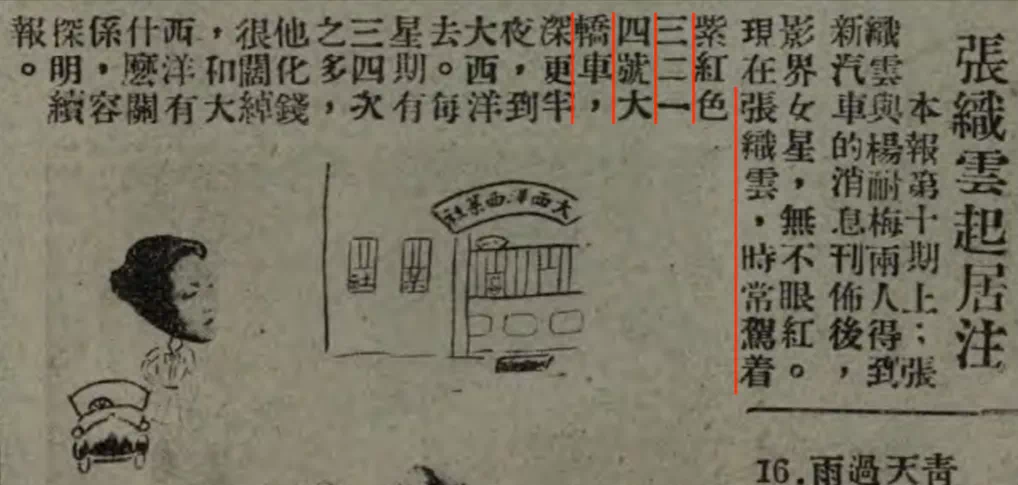 張織雲起居注
本報第十期上；張
織雲與楊耐梅兩人得到
新汽車的消息刊佈後，
影界女星，無不眼紅。
現在張織雲，時常駕着
紫紅色
三二一
四號大
轎車，
深更半
夜，到
大西洋
去。每
星期有
三四次
之多，
他化錢
很闊綽
，和大
西洋有
什麼關
係，容
探明續
報。
大西洋西菜社
菜
社
16.雨過天靑